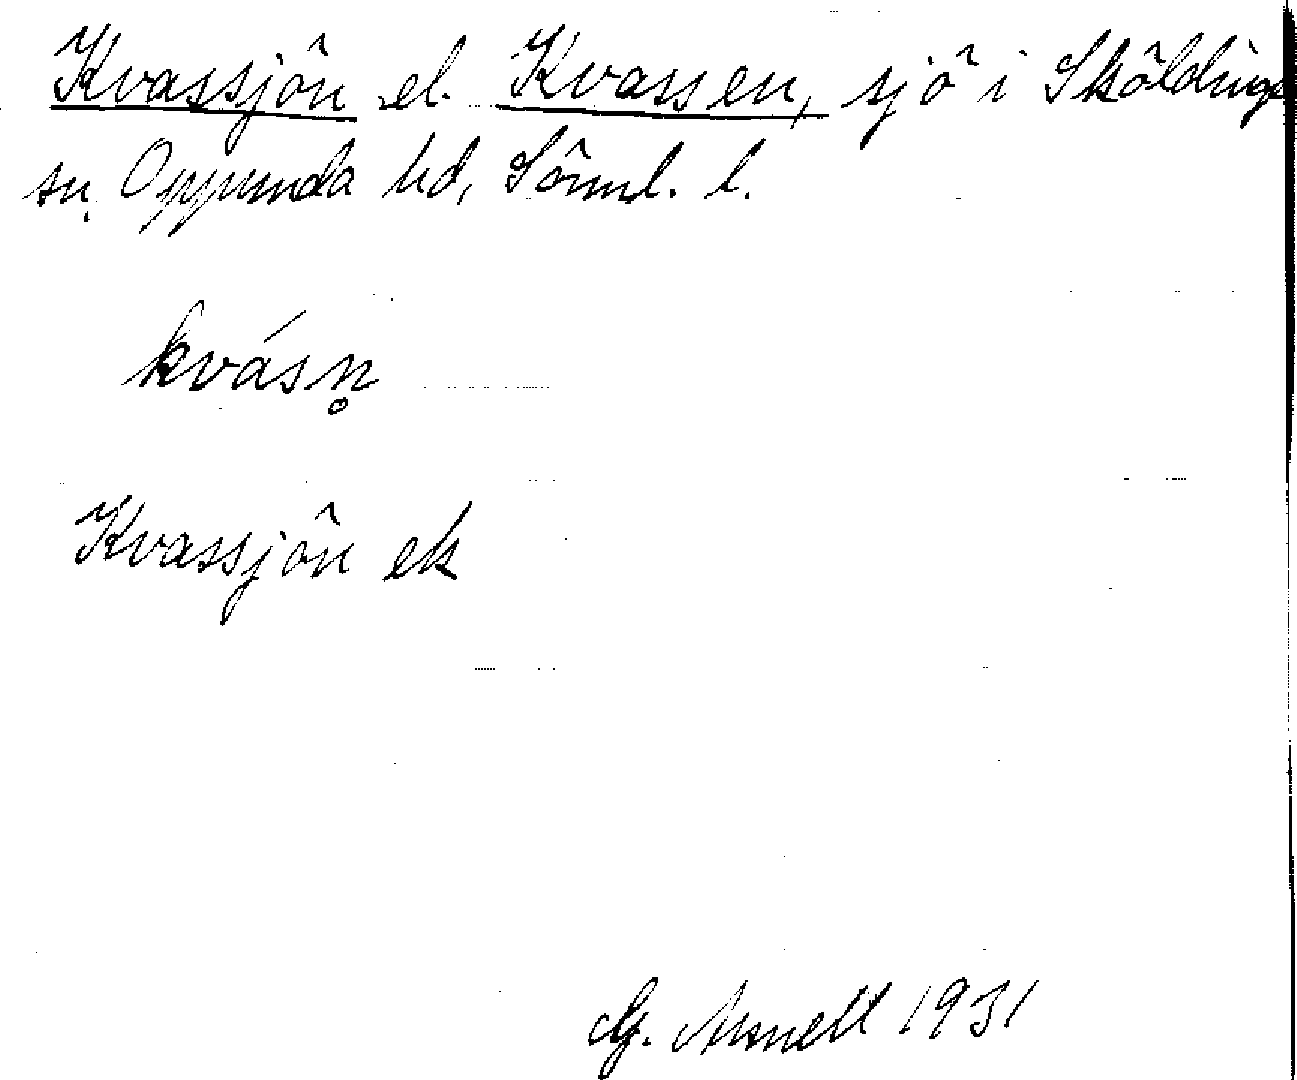 Kvassjön el. Kvassen, sjö i Sköldinge
sn. Oppunda hd, Sörml. l.
kvásn̥
Kvassjön ek
G. Arsnell 1931